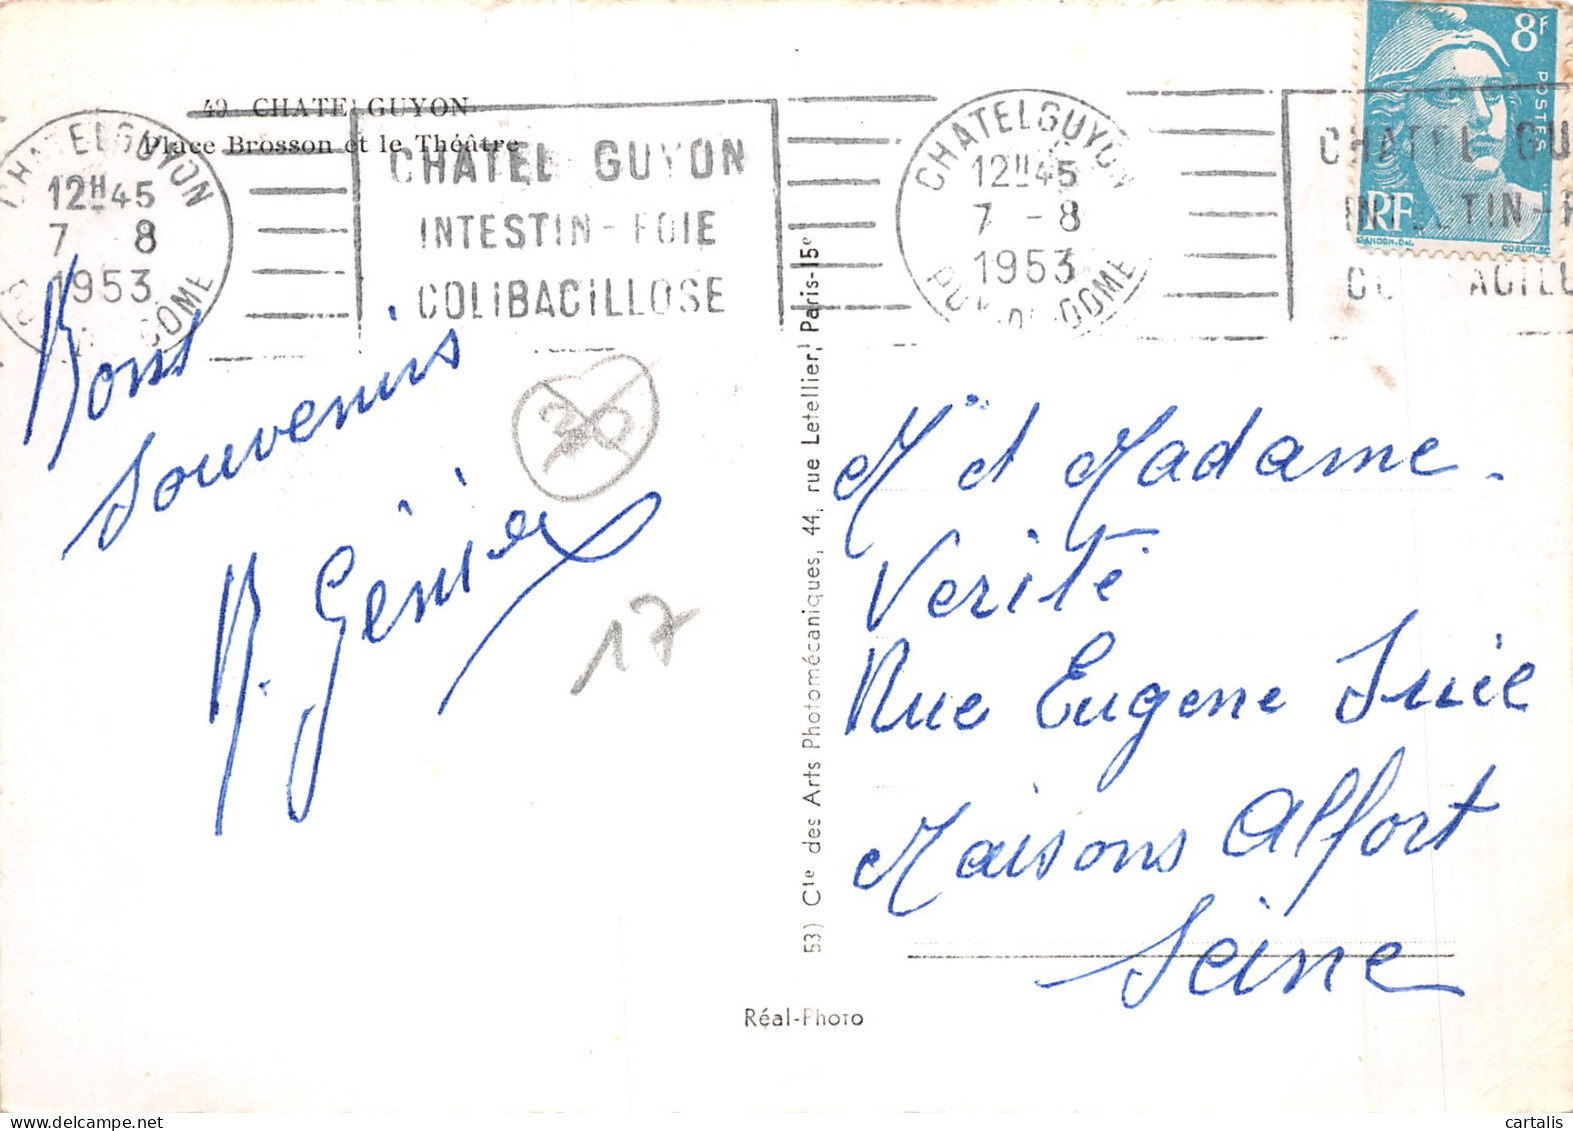 49. CHATELGUYON
Place Brosson et le Théâtre
CHATELGUYON
12H45
7 8
1953
DOME
CHATEL GUYON
INTESTIN - FOIE
COLIBACILLOSE
CHATELGUYON
12H45
7 - 8
1953
PUY-DE-DOME
CHATEL GU
INTESTIN - F
COLIBACILL
8F
POSTES
RF
GANDON. Del.
CORTOT. SC
Bons
Souvenirs
17
53) Cie des Arts Photomécaniques, 44, rue Letellier, Paris-15e
Réal-Photo
M et Madame
Verité
Rue Eugene Suie
Maisons Alfort
Seine
cartalis